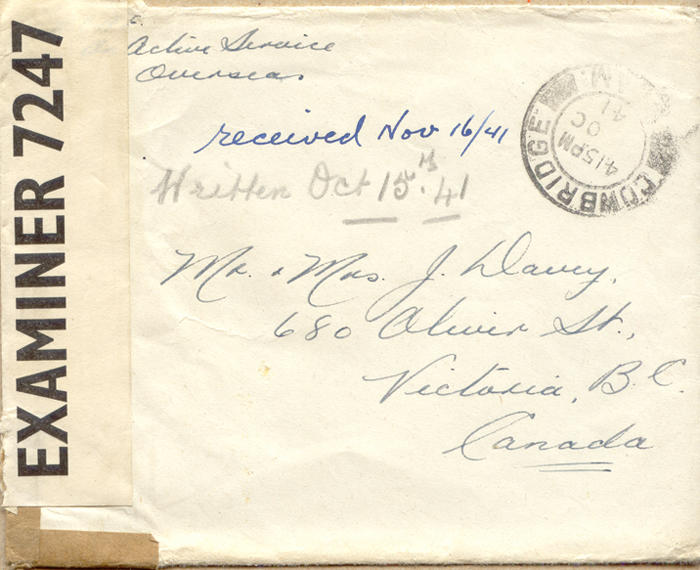 EXAMINER 7247
Active Service
Overseas
received Nov 16/41
Written Oct 15th. 41
COWBRIDGE
415PM
OC
41
Mr. & Mrs. J. Davey,
680 Oliver St.,
Victoria, B.C.
Canada